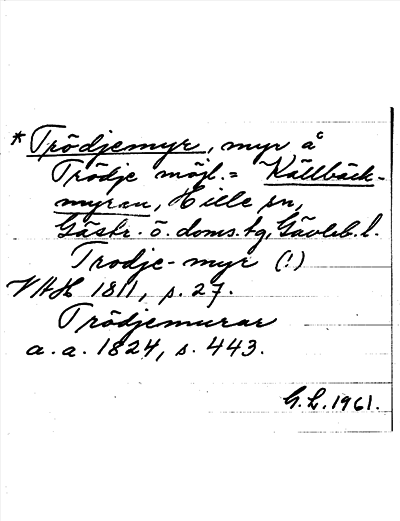 * Trödjemyr, myr å
Trödje möjl. = Källbäck-
myran, Hille sn,
Gästr. ö. doms.tg, Gävleb. l.
Trodje-myr (!)
VAH 1811, s. 27.
Trödjemurar
a. a. 1824, s. 443.
G. L. 1961.